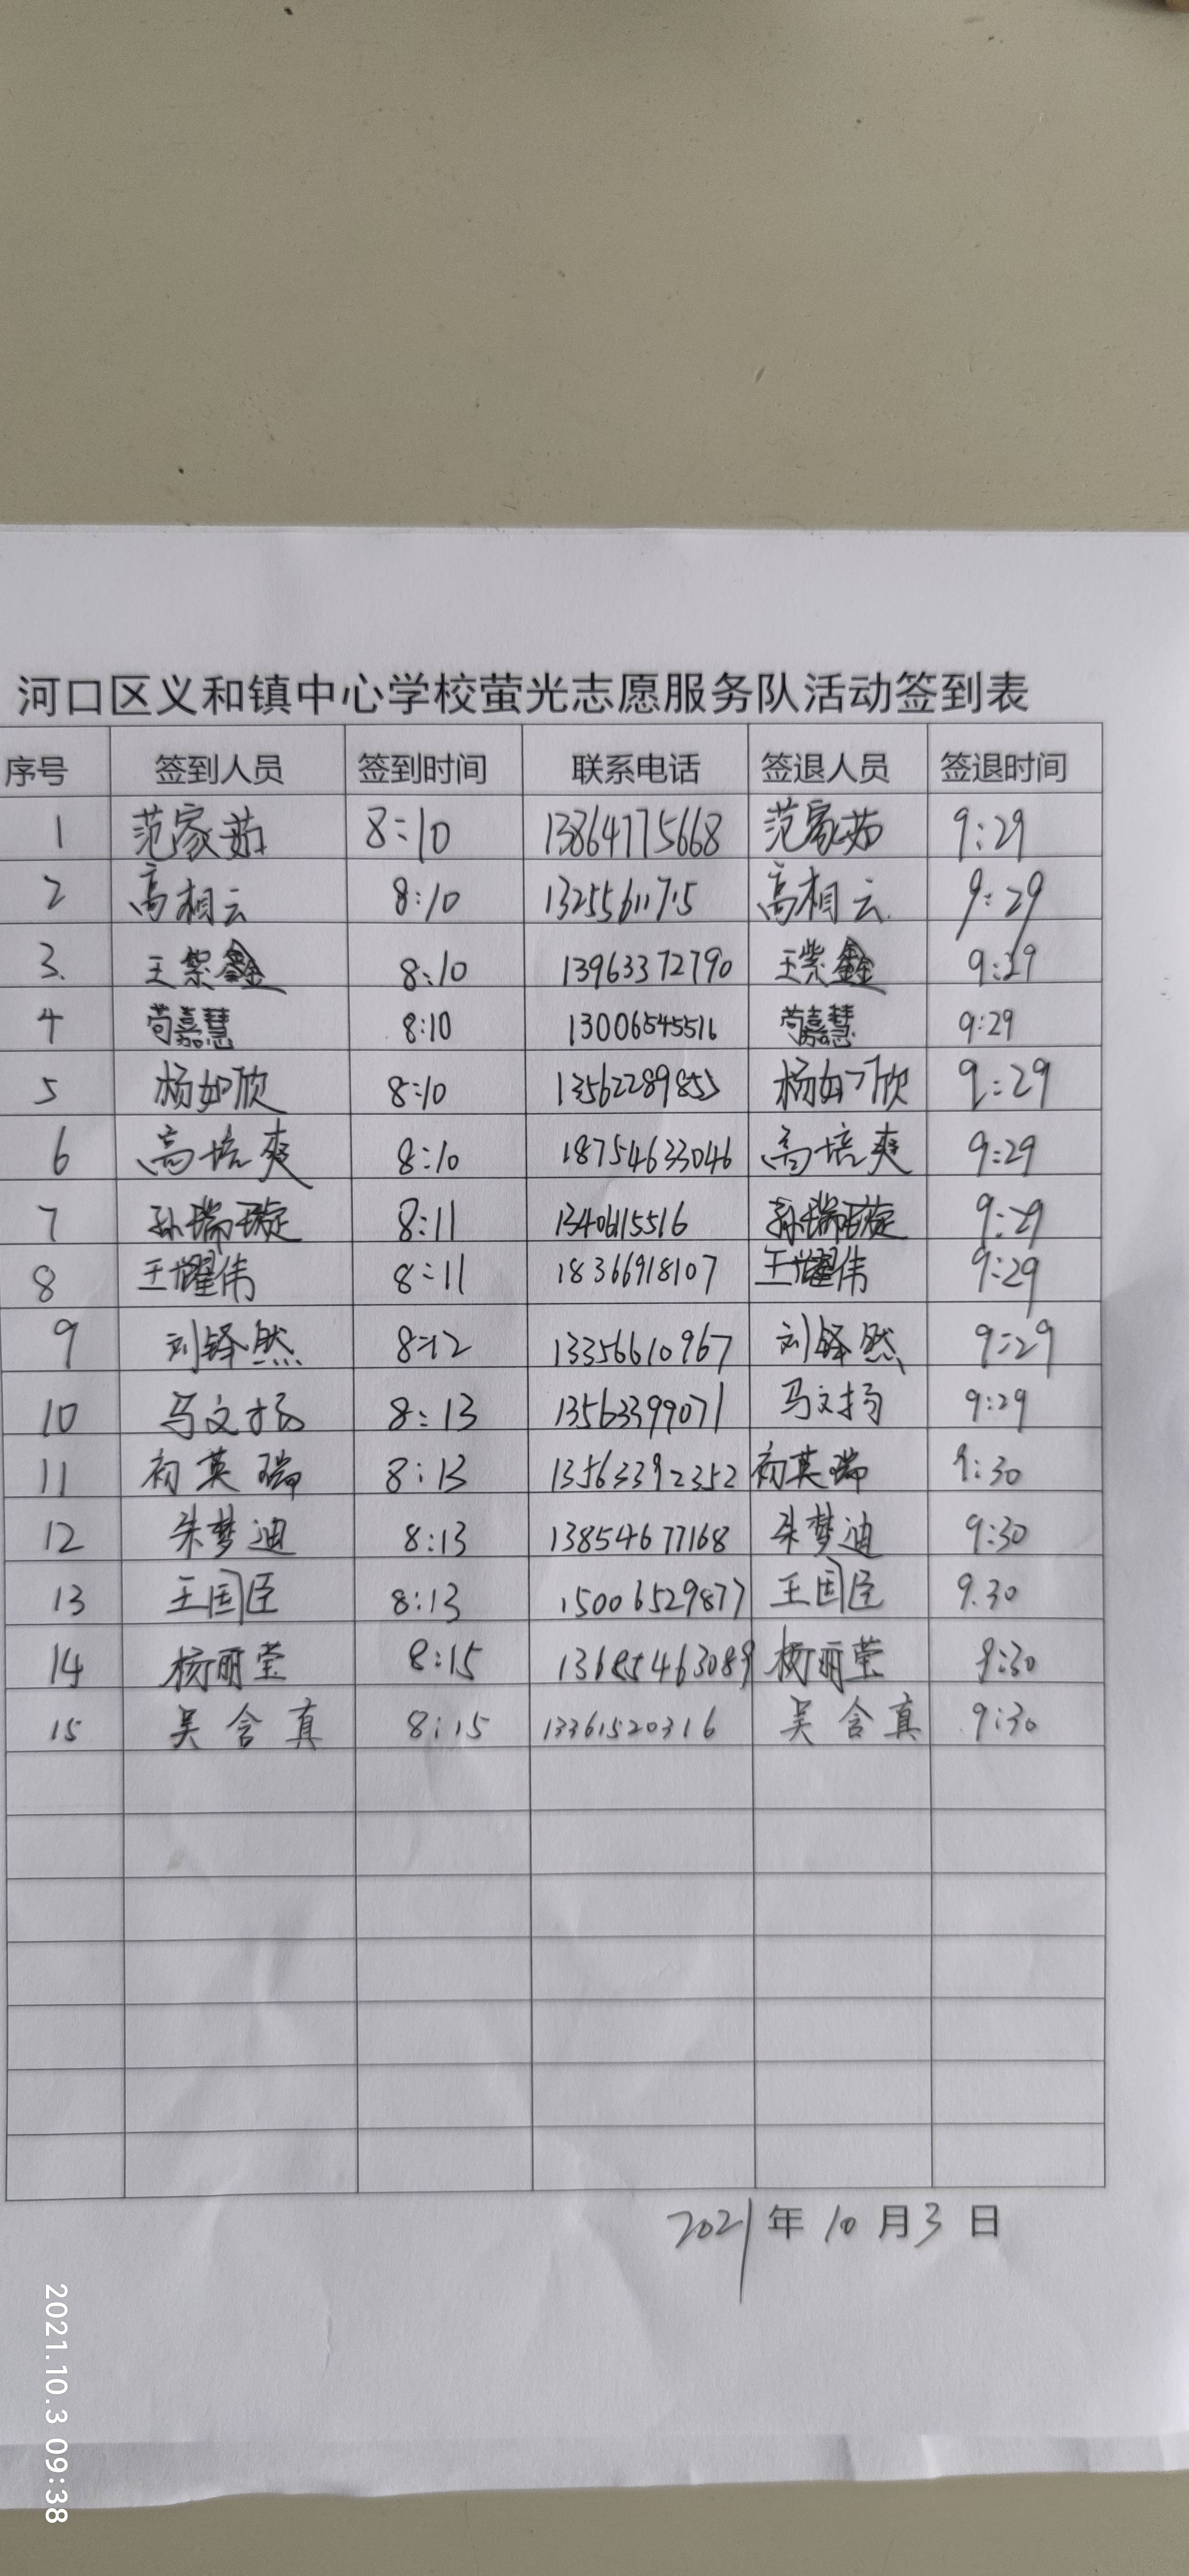 河口区义和镇中心学校萤光志愿服务队活动签到表
序号 签到人员 签到时间 联系电话 签退人员 签退时间
1 范家茹 8:10 13864775668 范家茹 9:29
2 高相云 8:10 高相云 9:29
3. 王紫鑫 8:10 13963372790 王紫鑫 9:29
4 苟嘉慧 8:10 13006545516 苟嘉慧 9:29
5 杨如欣 8:10 杨如欣 9:29
6 高培爽 8:10 18754633046 高培爽 9:29
7 孙瑞璇 8:11 孙瑞璇 9:29
8 王耀伟 8:11 18366918107 王耀伟 9:29
9 刘铎然 8:12 13356610967 刘铎然 9:29
10 马文扬 8:13 13563399071 马文扬 9:29
11 初英瑞 8:13 13563392352 初英瑞 9:30
12 朱梦迪 8:13 13854677168 朱梦迪 9:30
13 王国臣 8:13 15006529877 王国臣 9.30
14 杨丽莹 8:15 13685463089 杨丽莹 9:30
15 吴含真 8:15 13361520316 吴含真 9:30
2021年10月3日
2021.10.3 09:38